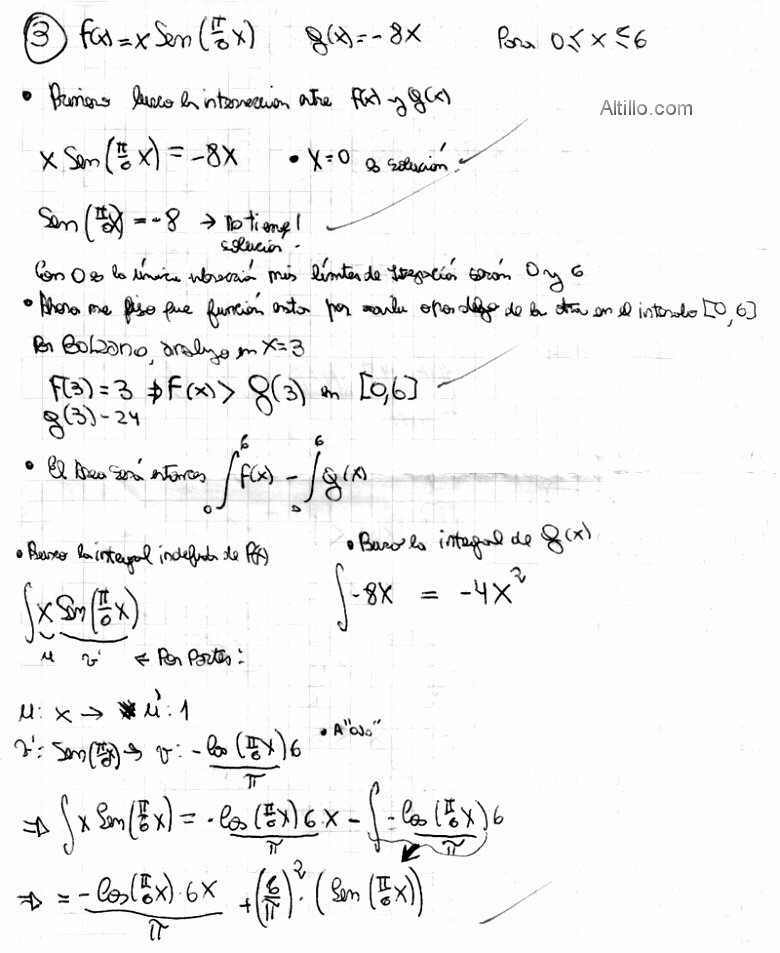 3 f(x) = x Sen(π/6 x) g(x) = -8x Para 0 ≤ x ≤ 6
Altillo.com
• Primero busco la intersección entre f(x) y g(x)
x Sen(π/6 x) = -8x • x=0 es solución.
Sen(π/6 x) = -8 → no tiene
solución.
Con 0 es la única mis límites de integración serán 0 y 6
• Ahora me fijo que función esta por arriba o por debajo de la otra en el intervalo [0,6]
Por Bolzano, analizo en x=3
f(3) = 3 ⇒ f(x) > g(3) en [0,6]
g(3) - 24
• El Area será entonces ∫₀⁶ f(x) - ∫₀⁶ g(x)
• Busco la integral indefinida de f(x) • Busco la integral de g(x)
∫ x Sen(π/6 x) ∫ -8x = -4x²
u v' ← Por Partes:
u: x → u': 1
v': Sen(π/6 x) → v: -Cos(π/6 x)6/π • A "ojo"
⇒ ∫ x Sen(π/6 x) = -Cos(π/6 x)6x/π - ∫ -Cos(π/6 x)6/π
⇒ = -Cos(π/6 x)·6x/π + (6/π)²·(Sen(π/6 x))